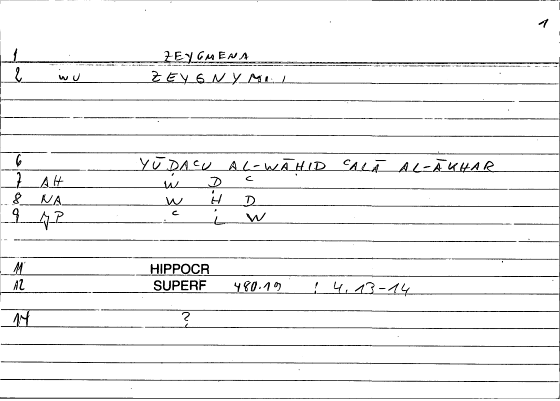 1
1 ZEYGMENA
2 WU ZEYGNYMI
6 YŪDAᶜU AL-WĀḤID ᶜALĀ AL-ĀKHAR
7 AH W D ᶜ
8 NA W Ḥ D
9 ᶜ L W
11 HIPPOCR
12 SUPERF 480.19 : 4.13-14
14 ?